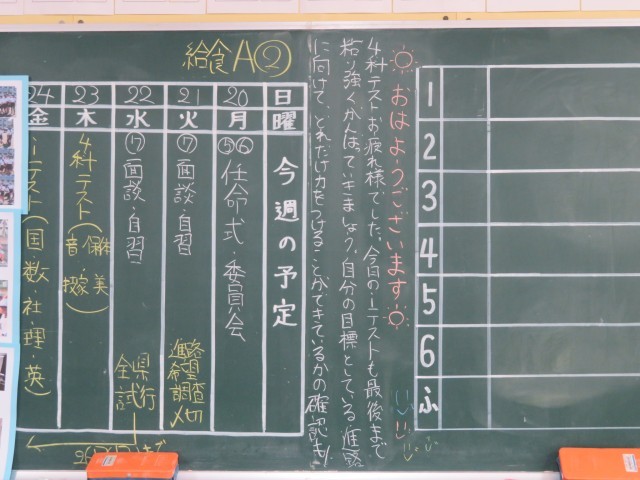 給食A②
☼おはようございます☼
4科テストお疲れ様でした。今日のiテストも最後まで
粘り強くがんばっていきましょう。自分の目標としている進路
に向けて、どれだけ力をつけることができているかの確認も!
1
2
3
4
5
6
ふ
日 曜 今週の予定
20 月 ⑤⑥ 任命式・委員会
21 火 ⑦ 面談・自習 進路希望調査〆切
22 水 ⑰ 面談・自習 全県試行
23 木 4科テスト(音・保体・技家・美)
24 金 iテスト(国・数・社・理・英)